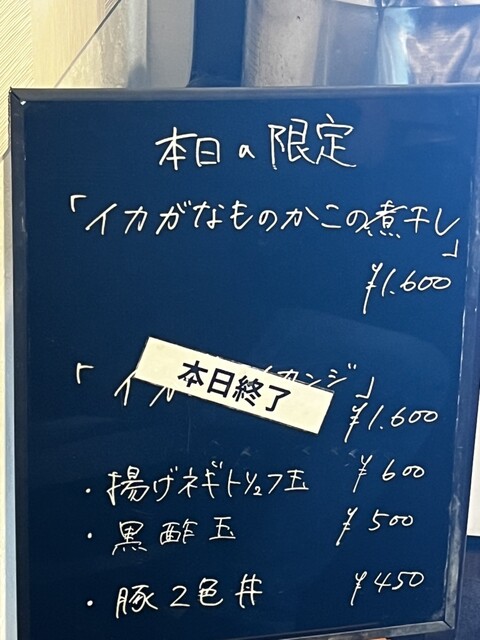 本日の限定
「イカがなものかこの煮干し」
¥1.600
「イカ カンジ」
本日終了
¥1.600
・揚げネギトリュフ玉 ¥600
・黒酢玉 ¥500
・豚2色丼 ¥450